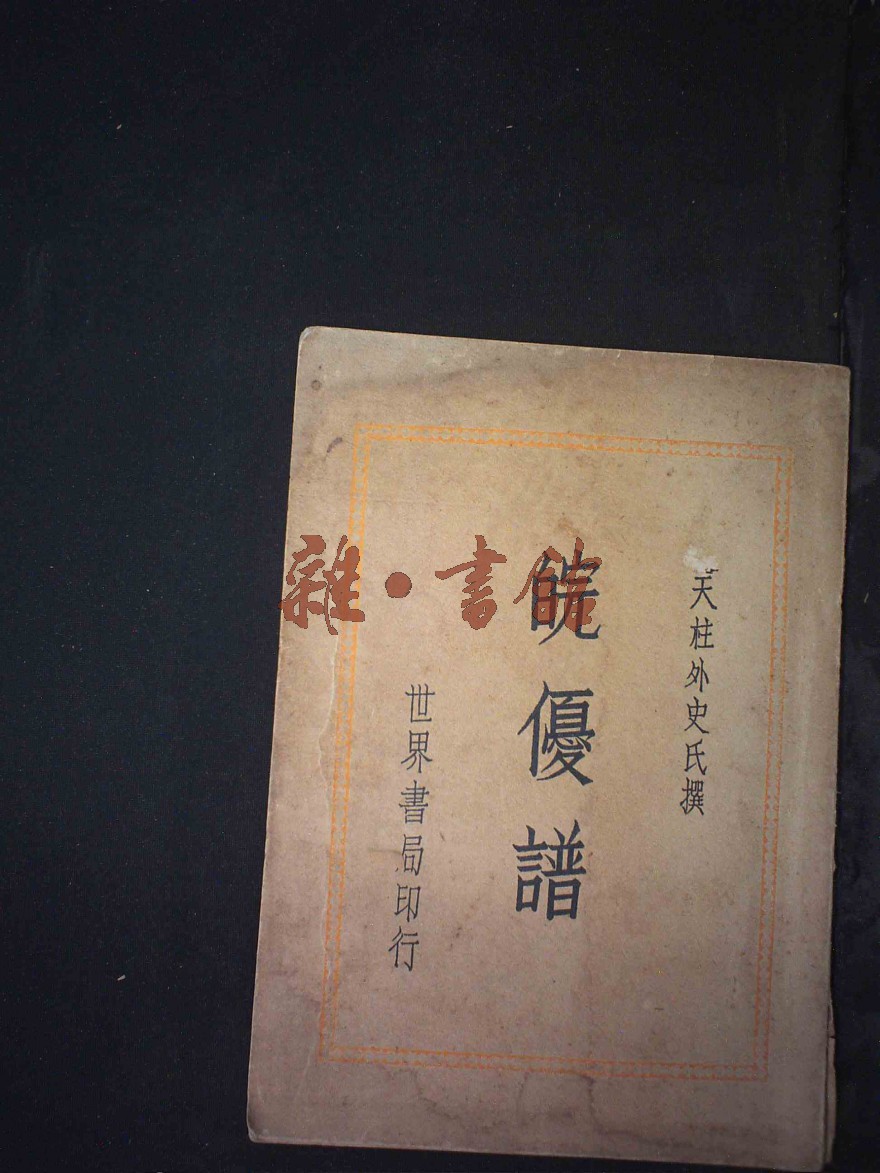 天柱外史氏撰
皖優譜
世界書局印行
雜·書館